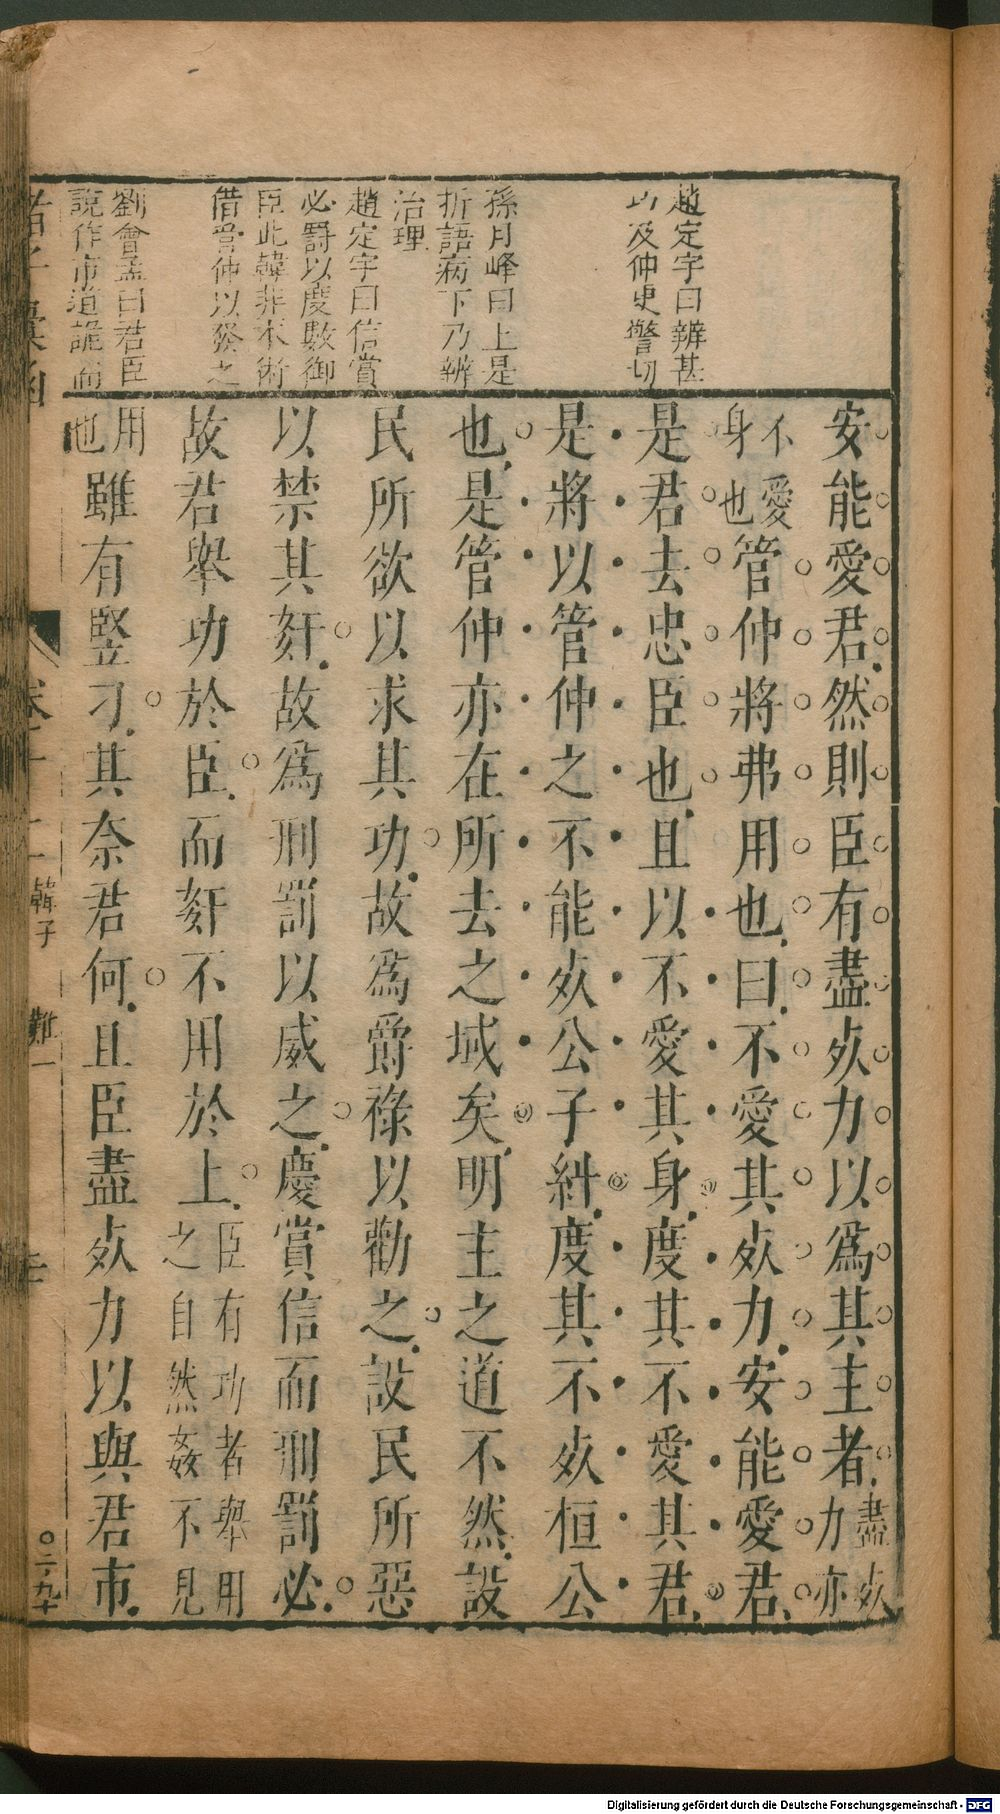 趙定宇曰辨甚
巧及仲史警切
孫月峰曰上是
折語病下乃辨
治理
趙定宇曰信賞
必罰以度數御
臣此韓非本術
借管仲以發之
劉會孟曰君臣
說作市道詭而
安能愛君然則臣有盡死力以爲其主者盡死力亦
不愛身也管仲將弗用也曰不愛其死力安能愛君
是君去忠臣也且以不愛其身度其不愛其君
是將以管仲之不能死公子糾度其不死桓公
也是管仲亦在所去之域矣明主之道不然設
民所欲以求其功故爲爵祿以勸之設民所惡
以禁其姦故爲刑罰以威之慶賞信而刑罰必
故君舉功於臣而姦不用於上臣有功者舉用之自然姦不見
用也雖有豎刁其奈君何且臣盡死力以與君市
諸子彙函 卷十二 韓子 難一
Digitalisierung gefördert durch die Deutsche Forschungsgemeinschaft - DFG